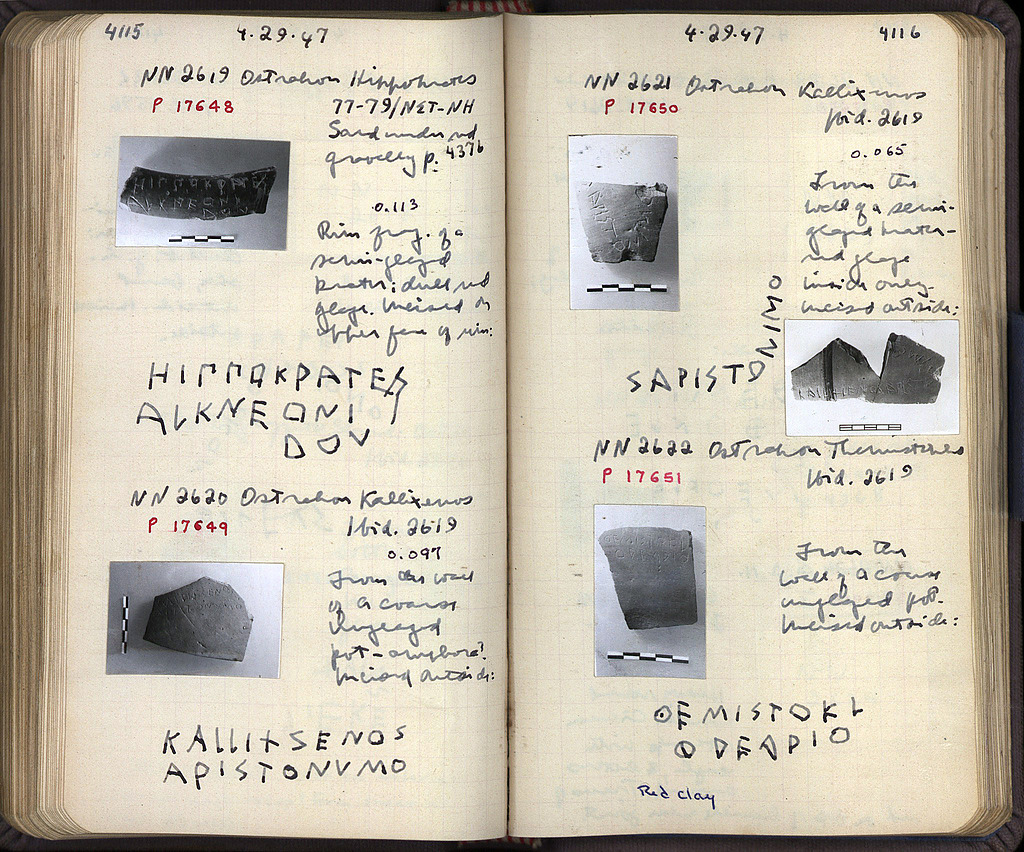 4115
4·29·47
NN 2619 Ostrakon Hippokrates
P 17648
77-79/ΝΣΤ-ΝΗ
Sand under red
gravelly p. 4376
0.113
Rim frag. of a
semi-glazed
krater: dull red
glaze. Incised on
upper face of rim:
HIΠΠOKPATES
ALKNEONI
DOV
NN 2620 Ostrakon Kallixenos
P 17649
Ibid. 2619
0.097
From the wall
of a coarse
unglazed
pot - amphora?
Incised outside:
KALLI+SENOS
APISTONVMO
4·29·47
4116
NN 2621 Ostrakon Kallixenos
P 17650
Ibid. 2619
0.065
From the
wall of a semi-
glazed krater -
red glaze
inside only.
Incised outside:
SAPISTO
NIMO
NN 2622 Ostrakon Themistokles
P 17651
Ibid. 2619
From the
wall of a coarse
unglazed pot.
Incised outside:
ΘEMISTOKL
ΘDEAPIO
Red clay